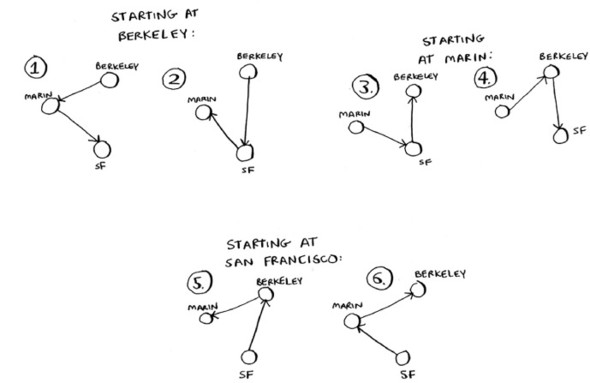 STARTING AT
BERKELEY:
1
BERKELEY
MARIN
SF
2
BERKELEY
MARIN
SF
STARTING
AT MARIN:
3.
BERKELEY
MARIN
SF
4.
BERKELEY
MARIN
SF
STARTING AT
SAN FRANCISCO:
5.
BERKELEY
MARIN
SF
6.
BERKELEY
MARIN
SF